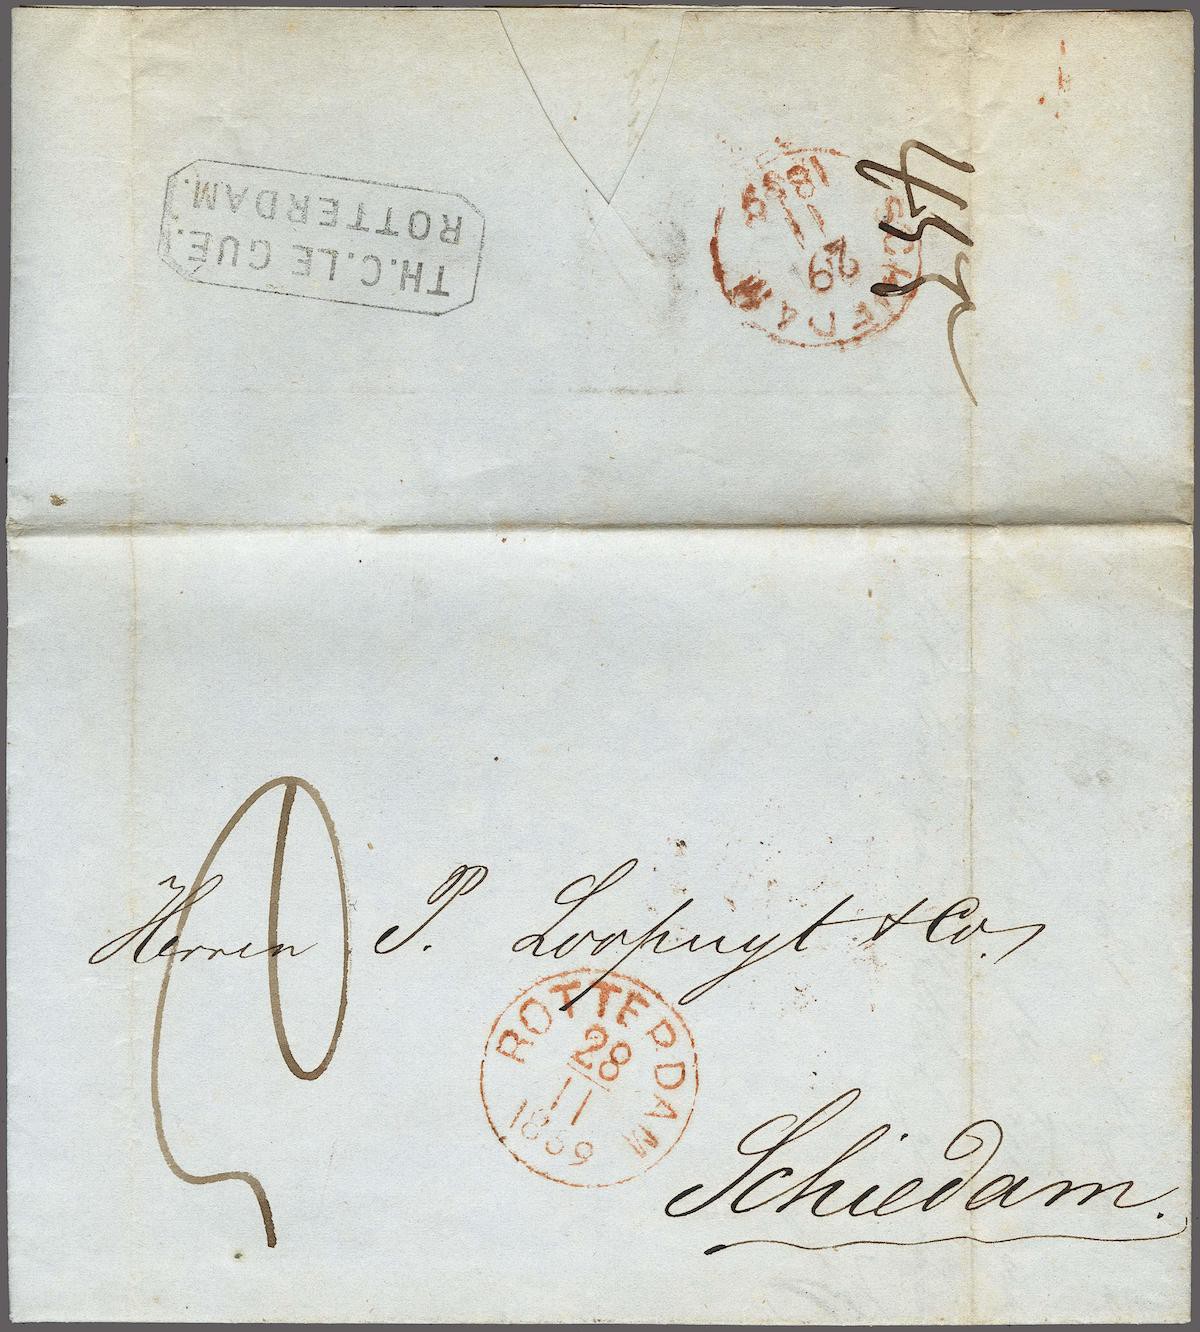 TH.C.LE GUE.
ROTTERDAM.
SCHIEDAM
29
11
1859
Herren P. Loopuyt & Co.,
ROTTERDAM
28
11
1859
Schiedam.